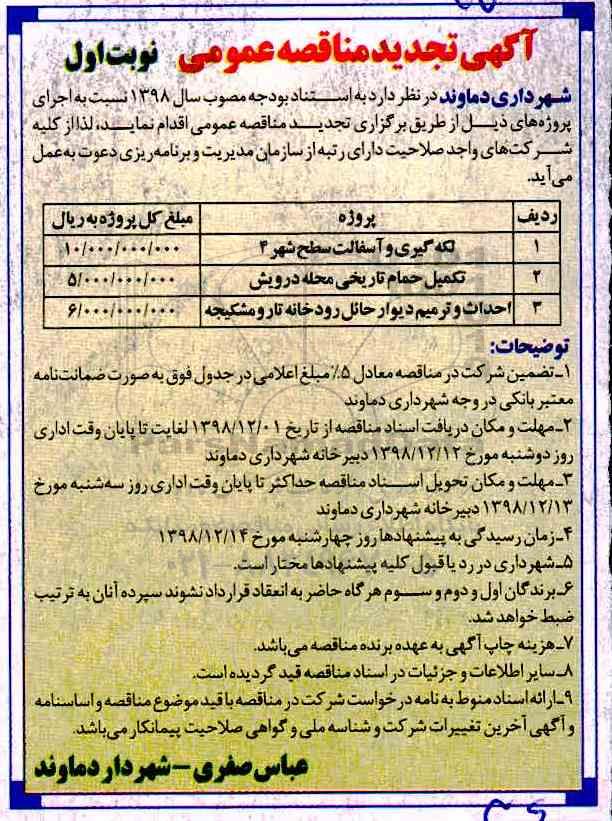 آگهی تجدید مناقصه عمومی نوبت اول
شهرداری دماوند در نظر دارد به استناد بودجه مصوب سال ۱۳۹۸ نسبت به اجرای
پروژه‌های ذیل از طریق برگزاری تجدید مناقصه عمومی اقدام نماید، لذا از کلیه
شرکت‌های واجد صلاحیت دارای رتبه از سازمان مدیریت و برنامه‌ریزی دعوت به عمل
می‌آید.
ردیف پروژه مبلغ کل پروژه به ریال
۱ لکه گیری و آسفالت سطح شهر ۴ ۱۰/۰۰۰/۰۰۰/۰۰۰
۲ تکمیل حمام تاریخی محله درویش ۵/۰۰۰/۰۰۰/۰۰۰
۳ احداث و ترمیم دیوار حائل رودخانه تار و مشکیجه ۶/۰۰۰/۰۰۰/۰۰۰
توضیحات:
۱ـ تضمین شرکت در مناقصه معادل ۵٪ مبلغ اعلامی در جدول فوق به صورت ضمانت‌نامه
معتبر بانکی در وجه شهرداری دماوند
۲ـ مهلت و مکان دریافت اسناد مناقصه از تاریخ ۱۳۹۸/۱۲/۰۱ لغایت تا پایان وقت اداری
روز دوشنبه مورخ ۱۳۹۸/۱۲/۱۲ دبیرخانه شهرداری دماوند
۳ـ مهلت و مکان تحویل اسناد مناقصه حداکثر تا پایان وقت اداری روز سه‌شنبه مورخ
۱۳۹۸/۱۲/۱۳ دبیرخانه شهرداری دماوند
۴ـ زمان رسیدگی به پیشنهادها روز چهارشنبه مورخ ۱۳۹۸/۱۲/۱۴
۵ـ شهرداری در رد یا قبول کلیه پیشنهادها مختار است.
۶ـ برندگان اول و دوم و سوم هرگاه حاضر به انعقاد قرارداد نشوند سپرده آنان به ترتیب
ضبط خواهد شد.
۷ـ هزینه چاپ آگهی به عهده برنده مناقصه می‌باشد.
۸ـ سایر اطلاعات و جزئیات در اسناد مناقصه قید گردیده است.
۹ـ ارائه اسناد منوط به نامه درخواست شرکت در مناقصه با قید موضوع مناقصه و اساسنامه
و آگهی آخرین تغییرات شرکت و شناسه ملی و گواهی صلاحیت پیمانکار می‌باشد.
عباس صفری – شهردار دماوند